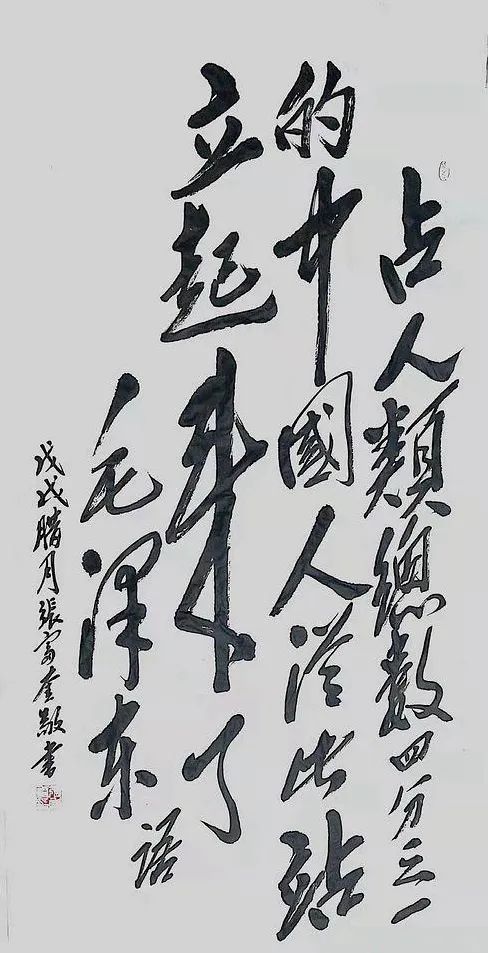 占人類總數四分之一
的中國人從此站
立起來了
毛澤东
语
戊戌腊月張富奎敬书